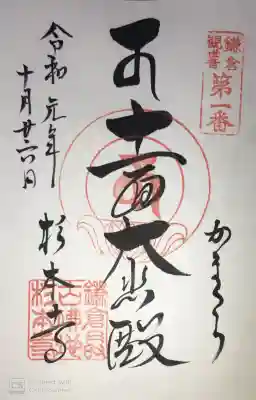 鎌倉
観世音
第一番
かまくら
十一面大悲殿
杉本寺
令和元年
十月廿六日